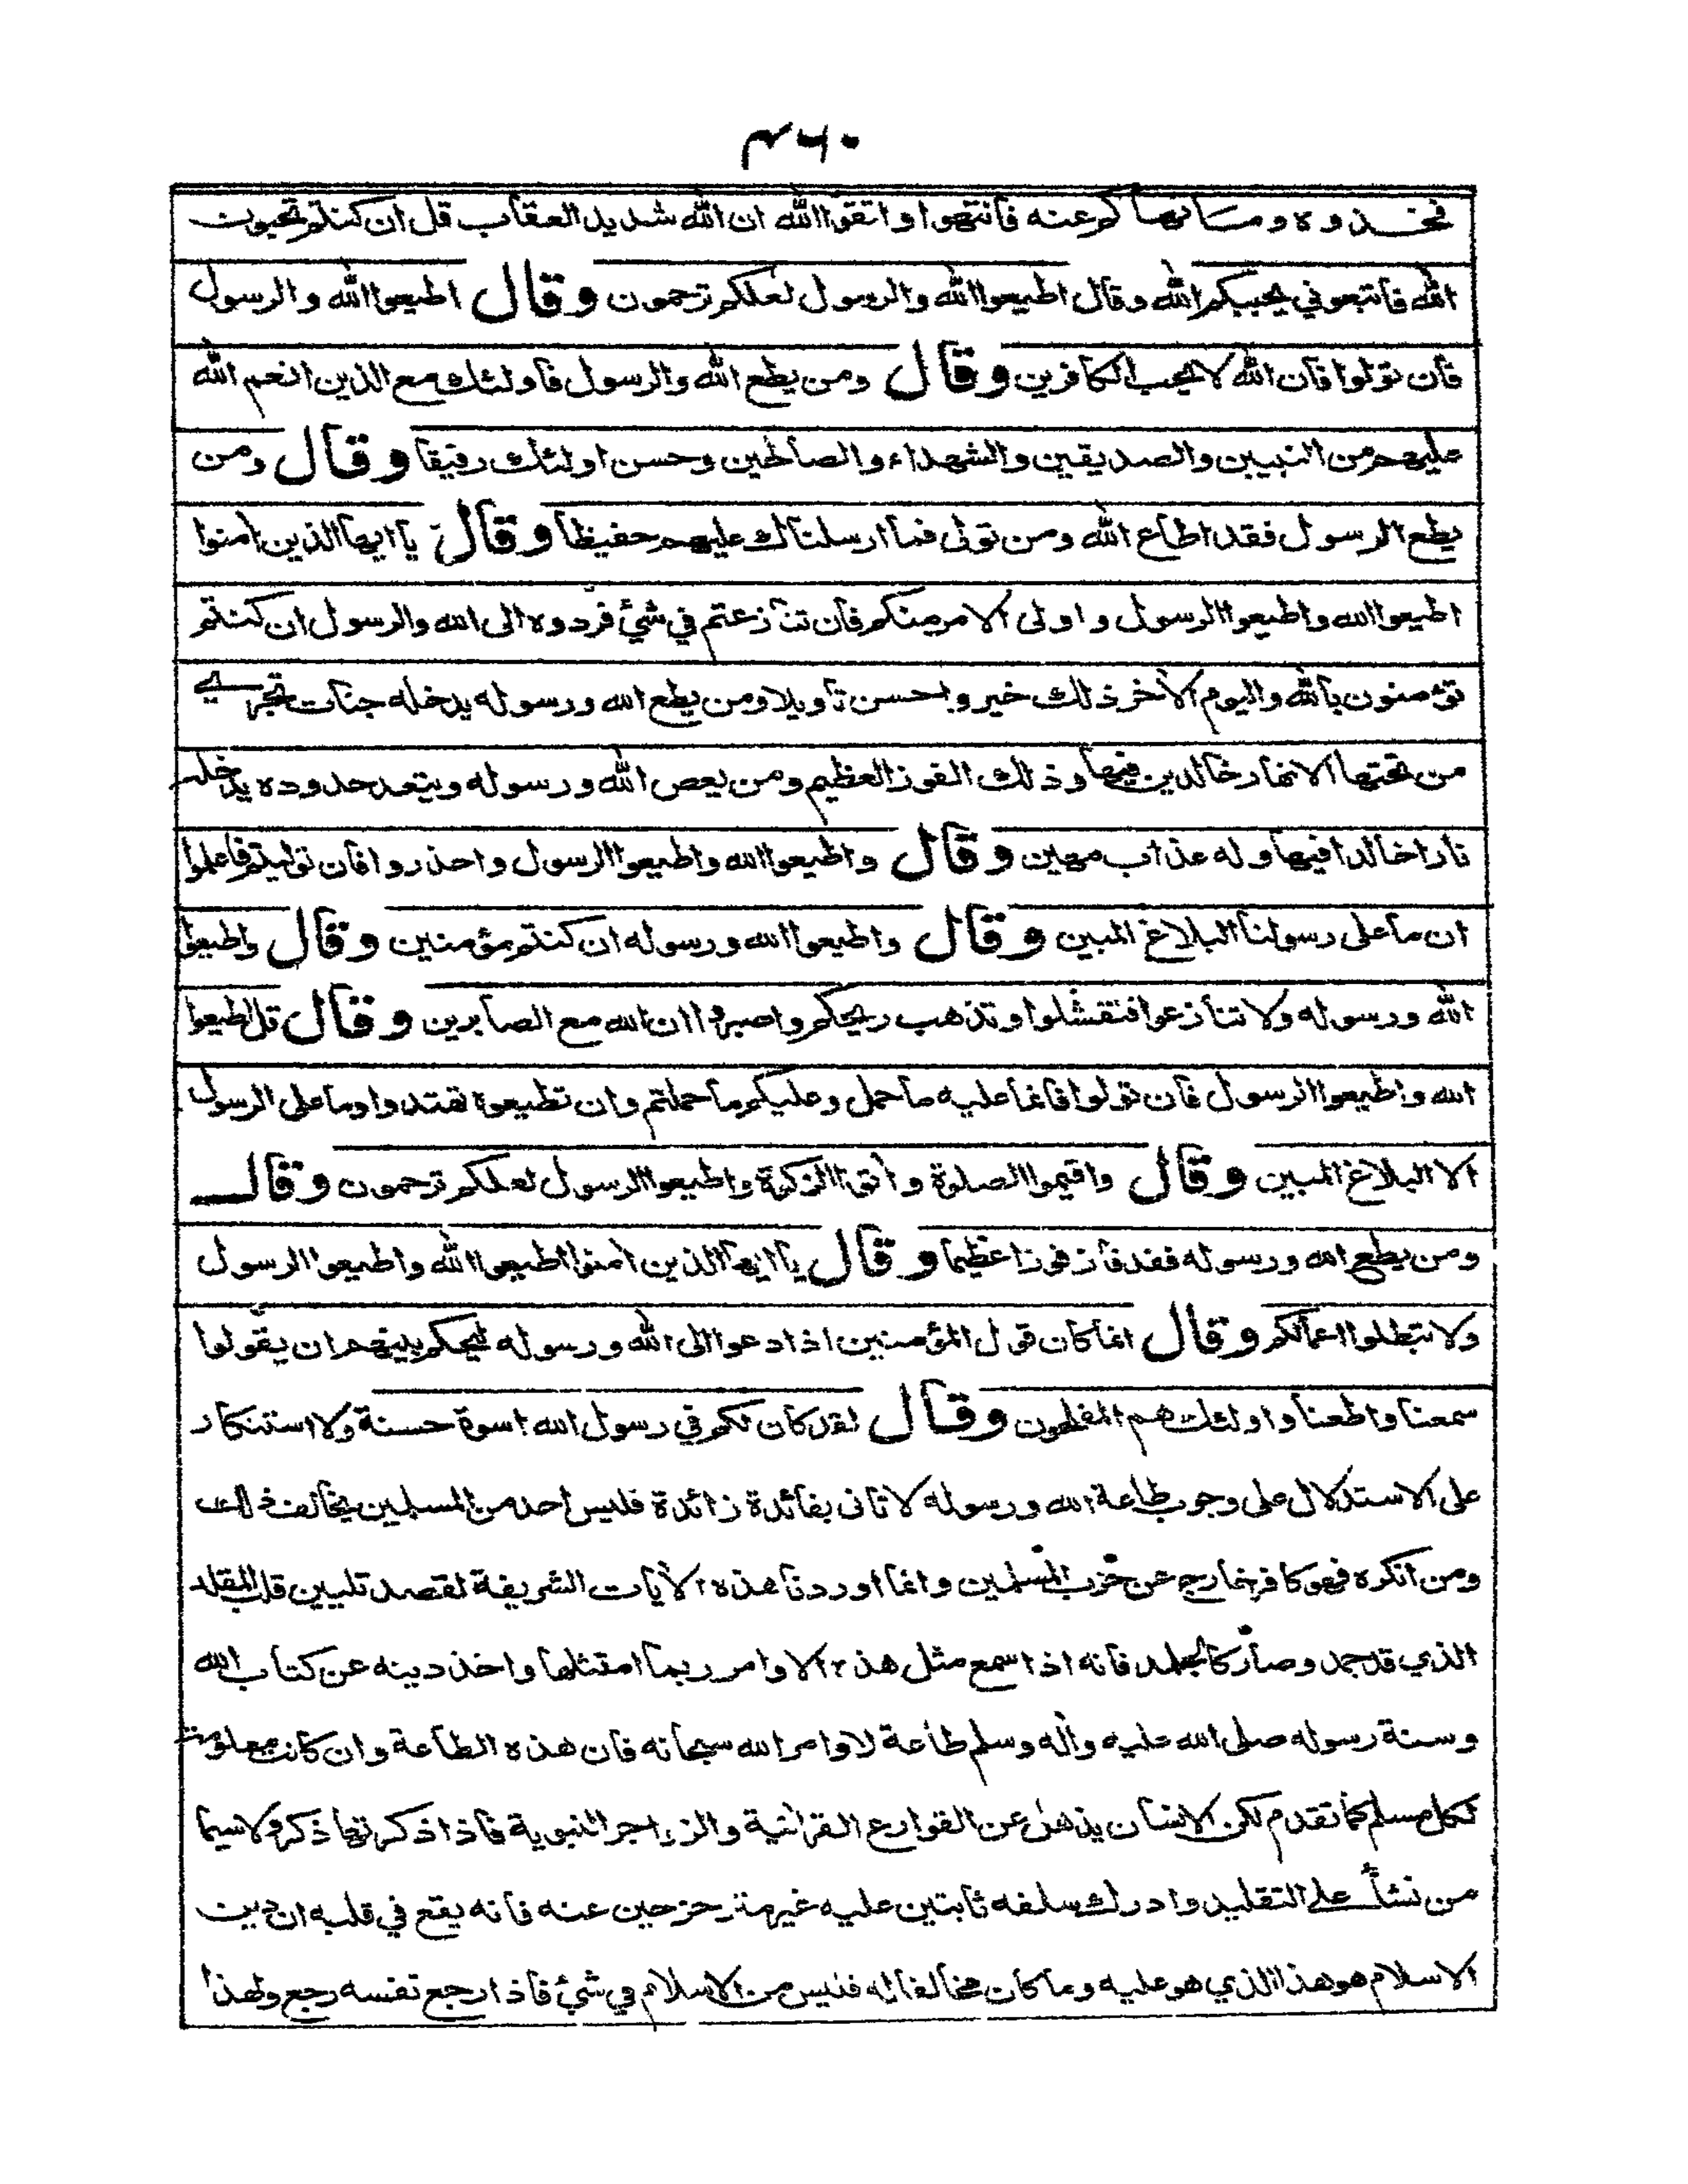 ٣٦٠
فخذوه وما نهاكم عنه فانتهوا واتقوا الله ان الله شديد العقاب قل ان كنتم تحبون
الله فاتبعوني يحببكم الله وقال اطيعوا الله والرسول لعلكم ترحمون وقال اطيعوا الله والرسول
فان تولوا فان الله لا يحب الكافرين وقال ومن يطع الله والرسول فاولئك مع الذين انعم الله
عليهم من النبيين والصديقين والشهداء والصالحين وحسن اولئك رفيقا وقال ومن
يطع الرسول فقد اطاع الله ومن تولى فما ارسلناك عليهم حفيظا وقال يا ايها الذين امنوا
اطيعوا الله واطيعوا الرسول واولى الامر منكم فان تنازعتم في شئ فردوه الى الله والرسول ان كنتم
تؤمنون بالله واليوم الأخر ذلك خير واحسن تاويلا ومن يطع الله ورسوله يدخله جنات تجري
من تحتها الانهار خالدين فيها وذلك الفوز العظيم ومن يعص الله ورسوله ويتعد حدوده يدخله
نارا خالدا فيها وله عذاب مهين وقال واطيعوا الله واطيعوا الرسول واحذروا فان توليتم فاعلموا
ان ما على رسولنا البلاغ المبين وقال واطيعوا الله ورسوله ان كنتم مؤمنين وقال واطيعوا
الله ورسوله ولا تنازعوا فتفشلوا وتذهب ريحكم واصبروا ان الله مع الصابرين وقال قل اطيعوا
الله واطيعوا الرسول فان تولوا فانما عليه ما حمل وعليكم ما حملتم وان تطيعوه تهتدوا وما على الرسول
الا البلاغ المبين وقال واقيموا الصلوة وأتوا الزكوة واطيعوا الرسول لعلكم ترحمون وقال
ومن يطع الله ورسوله فقد فاز فوزا عظيما وقال يا ايها الذين امنوا اطيعوا الله واطيعوا الرسول
ولا تبطلوا اعمالكم وقال انما كان قول المؤمنين اذا دعوا الى الله ورسوله ليحكم بينهم ان يقولوا
سمعنا واطعنا واولئك هم المفلحون وقال لقد كان لكم في رسول الله اسوة حسنة ولا استنكار
على الاستدلال على وجوب طاعة الله ورسوله لا تاتى بفائدة زائدة فليس احد من المسلمين يخالف ذلك
ومن انكره فهو كافر خارج عن حزب المسلمين وانما اوردنا هذه الأيات الشريفة لقصد تليين قلب المقلد
الذي قد جمد وصار كالجلمد فانه اذا سمع مثل هذه الاوامر ربما امتثلها واخذ دينه عن كتاب الله
وسنة رسوله صلى الله عليه وأله وسلم طاعة لاوامر الله سبحانه فان هذه الطاعة وان كانت معلومة
لكل مسلم كما تقدم لكن الانسان يذهل عن القوارع القرأنية والزواجر النبوية فاذا ذكر تها ذكر ولا سيما
من نشأ على التقليد وادرك سلفه ثابتين عليه غير متزحزحين عنه فانه يقع في قلبه ان دين
الاسلام هو هذا الذي هو عليه وما كان مخالفا له فليس من الاسلام في شئ فاذا رجع نفسه رجع ولهذا